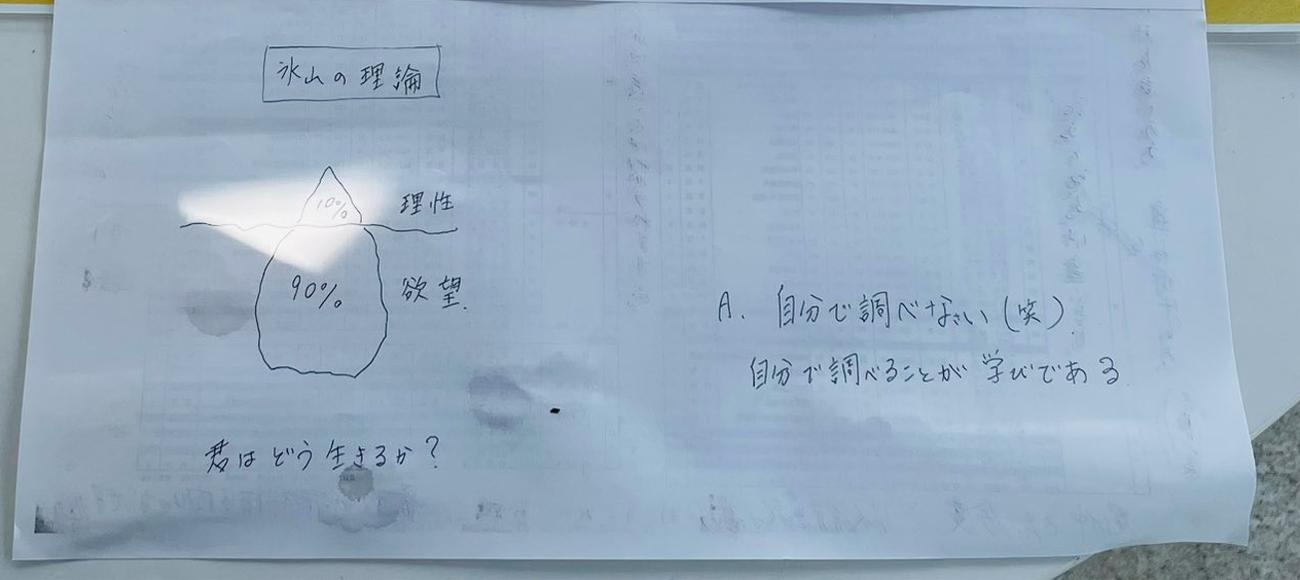 氷山の理論
10%
理性
90%
欲望.
君はどう生きるか?
A. 自分で調べなさい(笑)
自分で調べることが学びである